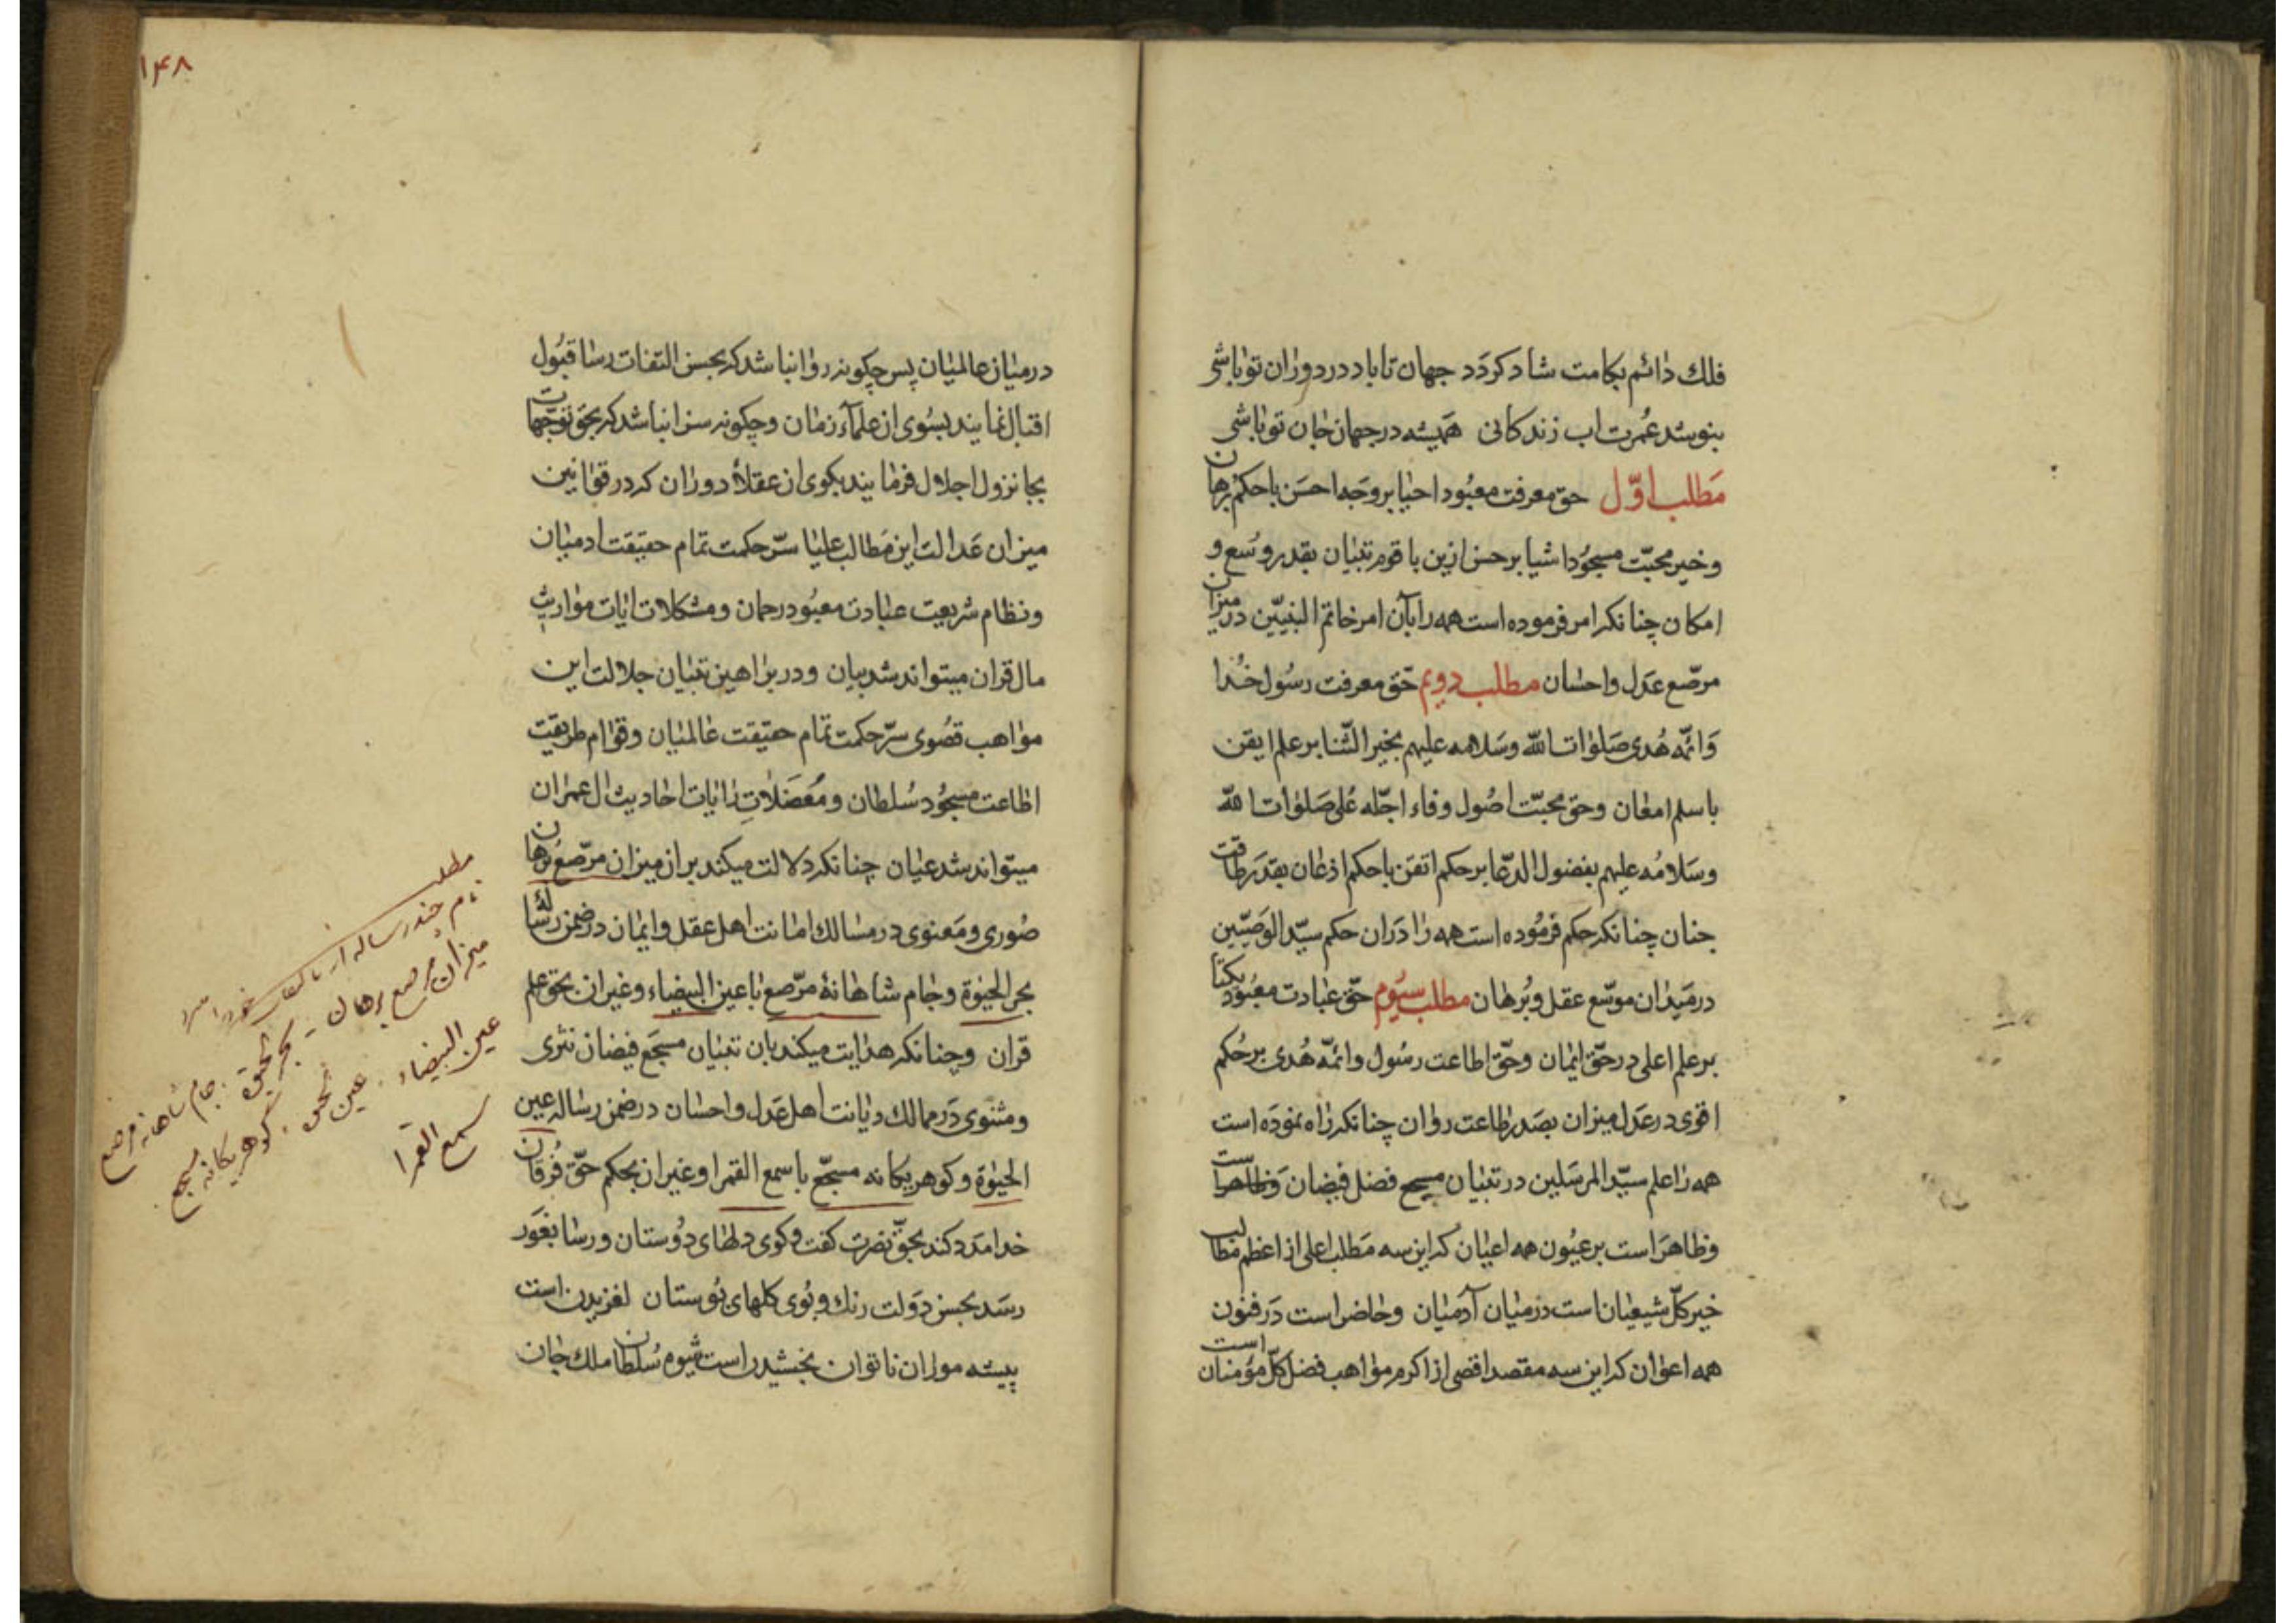 فلك دائم بكامت شاد كردد جهان تا باد در دوران تو باشى
بنوشد عمرت اب زندكانى هميشه در جهان جان تو باشى
مطلب اوّل حق معرفت معبود احيا بر وجه احسن با حكم برهان
و خير محبّت مسجود اشيا بر حسن ازين با قوم تبيان بقدر وسع و
امكان چنانكه امر فرموده است همه را بآن امر خاتم النبيّين در ميزان
مرصّع عدل و احسان مطلب دويم حقّ معرفت رسول خدا
و ائمّه هدى صلوات الله و سلامه عليهم بخير الثّنا بر علم ايقن
با سلم امعان و حق محبّت اصول وفاء اجلّه على صلوات الله
و سلامه عليهم بفضول الدّعا بر حكم اتقن با حكم اذعان بقدر طاقت
جنان چنانكه حكم فرموده است همه را در ان حكم سيّد الوصيّين
در ميدان موسّع عقل و برهان مطلب سيوم حقّ عبادت معبود يكتا
بر علم اعلى در حقّ ايمان و حقّ اطاعت رسول و ائمّه هدى بر حكم
اقوى در عدل ميزان بصدر طاعت روان چنانكه راه نموده است
همه را علم سيّد المرسلين در تبيان مسيح فضل فيضان
و ظاهر است بر عيون همه اعيان كه اين سه مطلب اعلى از اعظم مطالب
خير كلّ شيعيان است در ميان آدميان و حاضر است در فنون
همه اعوان كه اين سه مقصد اقصى از اكرم مواهب فضل كلّ مؤمنان است
١٤٨
در ميان عالميان پس چكونه روا نباشد كه بحسن التفات رسا قبول
اقبال نمايند بسوى ان علمآء زمان و چكونه سزا نباشد كه بحق توجّهات
بجا نزول اجلال فرمايند بكوى ان عقلاء دوران كه در قوانين
ميزان عدالت اين مطالب عليا سرّ حكمت تمام حقيقت ادميان
و نظام شريعت عبادت معبود رحمان و مشكلات ايات مواريث
مال قران ميتواند شد بيان و در براهين تبيان جلالت اين
مواهب قصوى سرّ حكمت تمام حقيقت عالميان و قوام طريقت
اطاعت مسجود سلطان و معضلات رايات احاديث ال عمران
ميتواند شد عيان چنانكه دلالت ميكند بر ان ميزان مرصّع برهان
صورى و معنوى در مسالك امانت اهل عقل و ايمان در ضمن رساله
بحر الحيوة و جام شاهانۀ مرصّع با عين البيضاء و غير ان بحق علم
قران و چنانكه هدايت ميكند بان تبيان مسجع فيضان نثرى
و مثنوى در ممالك ديانت اهل عدل و احسان در ضمن رساله عين
الحيوة و كوهر يكانه مسجّع با سمع القمرا و غير ان بحكم حقّ فرقان
خدا مدد كند بحقّ نصرت كفت و كوى دلهاى دوستان و رسا بغور
رسد بحسن دولت رنك و بوى كلهاى بوستان لغزيدن است
پيشه موران ناتوان بخشيدن است شيوه سلطان ملك جان
مطلب
نام چند رساله از
ميزان مرصع برهان ـ بحر الحيوة . جام شاهانه مرصع
عين البيضاء . عين الحيوة . كوهر يكانه مسجع .
سمع القمرا